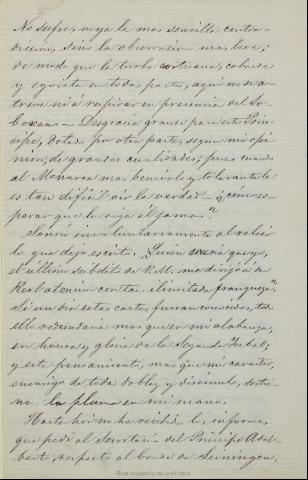 No sufre, no ya la mas sencilla contra-
diccion, sino la observacion mas leve;
de modo que la turba cortesana, cobarde
y egoista en todas partes, aquí no se a-
treve ni á respirar en presencia del So-
berano — Desgracia grande para este Prin-
cipe, dotado por otra parte, segun mi opi-
nion, de grandes cualidades; pues cuando
al Monarca mas benévolo y tolerante le
es tan dificil oir la verdad — ¿cómo es-
perar que la oiga él jamas?
Sonrio involuntariamente al releér
lo que dejo escrito. ¿Quién que yo,
el último subdito de V. M. me dirijo á su
Real atencion con tan ilimitada franqueza?
Si un dia estas cartas fueran conocidas, todo
ello redundaria mas que en mi alabanza,
en honra y gloria de la Segunda Isabel;
y este pensamiento, mas que mi caracter,
enemigo de toda doblez y disimulo, sostie-
ne la pluma en mi mano.
Hasta hoi no he recibido los informes
que pedí al Secretario del Príncipe Adal-
berto, respecto al Conde de Leiningen,
Real Academia de la Historia